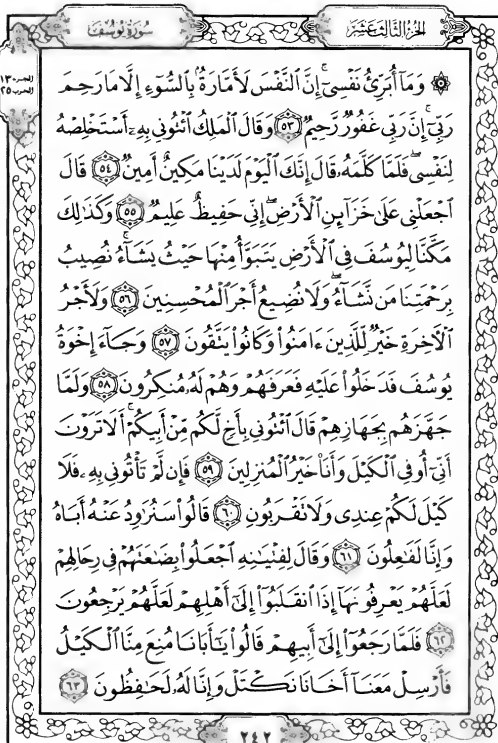 الجزء الثالث عشر
سورة يوسف
الجزء ١٣
الحزب ٢٥
۞ وَمَآ أُبَرِّئُ نَفْسِىٓ ۚ إِنَّ ٱلنَّفْسَ لَأَمَّارَةٌۢ بِٱلسُّوٓءِ إِلَّا مَا رَحِمَ
رَبِّىٓ ۚ إِنَّ رَبِّى غَفُورٌ رَّحِيمٌ ٥٣ وَقَالَ ٱلْمَلِكُ ٱئْتُونِى بِهِۦٓ أَسْتَخْلِصْهُ
لِنَفْسِى ۖ فَلَمَّا كَلَّمَهُۥ قَالَ إِنَّكَ ٱلْيَوْمَ لَدَيْنَا مَكِينٌ أَمِينٌ ٥٤ قَالَ
ٱجْعَلْنِى عَلَىٰ خَزَآئِنِ ٱلْأَرْضِ ۖ إِنِّى حَفِيظٌ عَلِيمٌ ٥٥ وَكَذَٰلِكَ
مَكَّنَّا لِيُوسُفَ فِى ٱلْأَرْضِ يَتَبَوَّأُ مِنْهَا حَيْثُ يَشَآءُ ۚ نُصِيبُ
بِرَحْمَتِنَا مَن نَّشَآءُ ۖ وَلَا نُضِيعُ أَجْرَ ٱلْمُحْسِنِينَ ٥٦ وَلَأَجْرُ
ٱلْـَٔاخِرَةِ خَيْرٌ لِّلَّذِينَ ءَامَنُوا۟ وَكَانُوا۟ يَتَّقُونَ ٥٧ وَجَآءَ إِخْوَةُ
يُوسُفَ فَدَخَلُوا۟ عَلَيْهِ فَعَرَفَهُمْ وَهُمْ لَهُۥ مُنكِرُونَ ٥٨ وَلَمَّا
جَهَّزَهُم بِجَهَازِهِمْ قَالَ ٱئْتُونِى بِأَخٍ لَّكُم مِّنْ أَبِيكُمْ ۚ أَلَا تَرَوْنَ
أَنِّىٓ أُوفِى ٱلْكَيْلَ وَأَنَا۠ خَيْرُ ٱلْمُنزِلِينَ ٥٩ فَإِن لَّمْ تَأْتُونِى بِهِۦ فَلَا
كَيْلَ لَكُمْ عِندِى وَلَا تَقْرَبُونِ ٦٠ قَالُوا۟ سَنُرَٰوِدُ عَنْهُ أَبَاهُ
وَإِنَّا لَفَٰعِلُونَ ٦١ وَقَالَ لِفِتْيَٰنِهِ ٱجْعَلُوا۟ بِضَٰعَتَهُمْ فِى رِحَالِهِمْ
لَعَلَّهُمْ يَعْرِفُونَهَآ إِذَا ٱنقَلَبُوٓا۟ إِلَىٰٓ أَهْلِهِمْ لَعَلَّهُمْ يَرْجِعُونَ
٦٢ فَلَمَّا رَجَعُوٓا۟ إِلَىٰٓ أَبِيهِمْ قَالُوا۟ يَٰٓأَبَانَا مُنِعَ مِنَّا ٱلْكَيْلُ
فَأَرْسِلْ مَعَنَآ أَخَانَا نَكْتَلْ وَإِنَّا لَهُۥ لَحَٰفِظُونَ ٦٣
٢٤٢